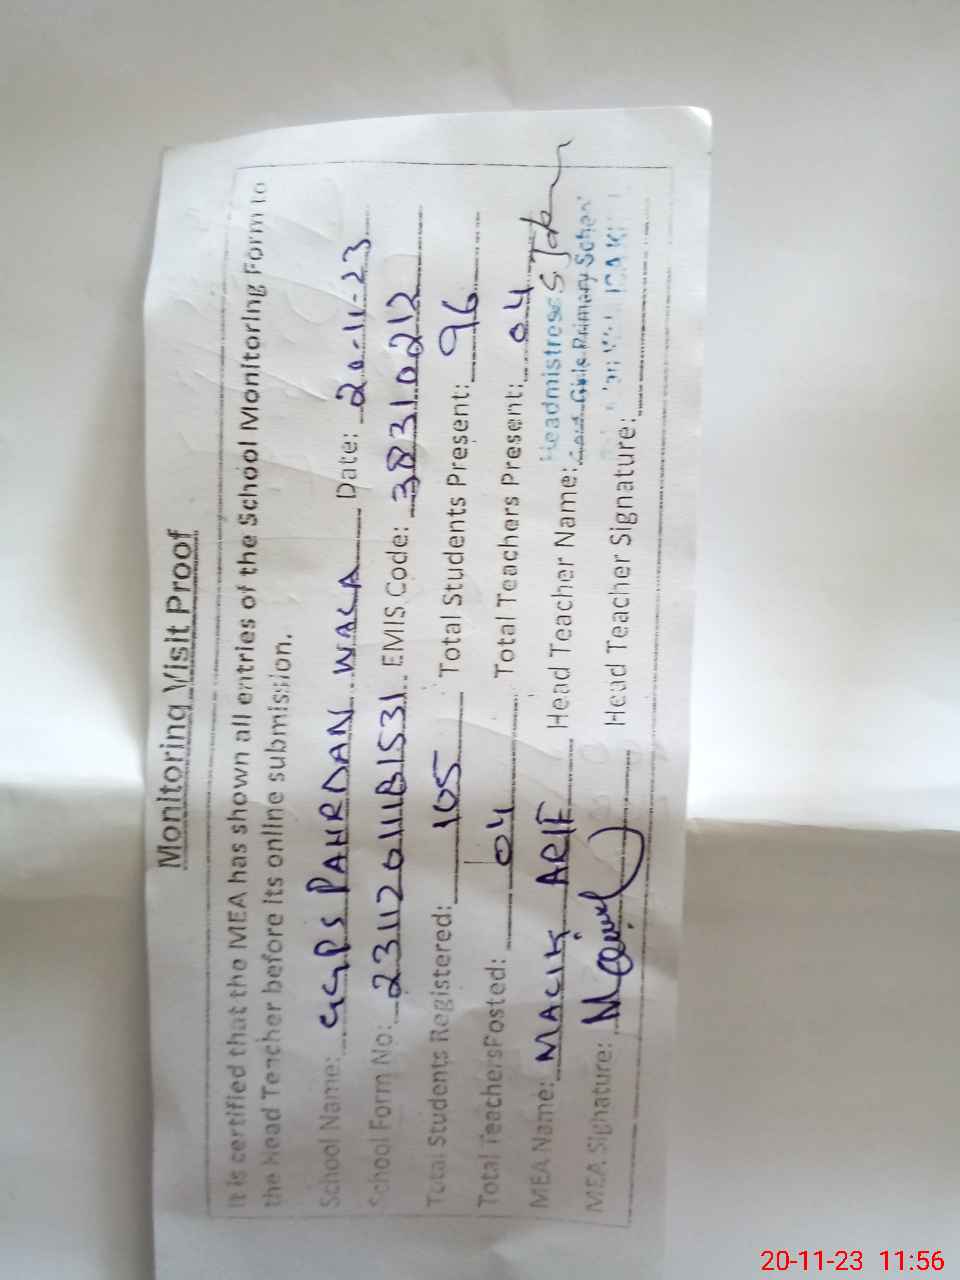 Monitoring Visit Proof
It is certified that the MEA has shown all entries of the School Monitoring Form to
the Head Teacher before its online submission.
School Name: GGPS PAHRDAN WALA Date: 20-11-23
School Form No: 231120111B1531 EMIS Code: 38310212
Total Students Registered: 105 Total Students Present: 96
Total Teachers Posted: 04 Total Teachers Present: 04
MEA Name: MALIK ARIF Head Teacher Name: Headmistress
Govt. Girls Primary School
MEA Signature: Head Teacher Signature:
20-11-23 11:56